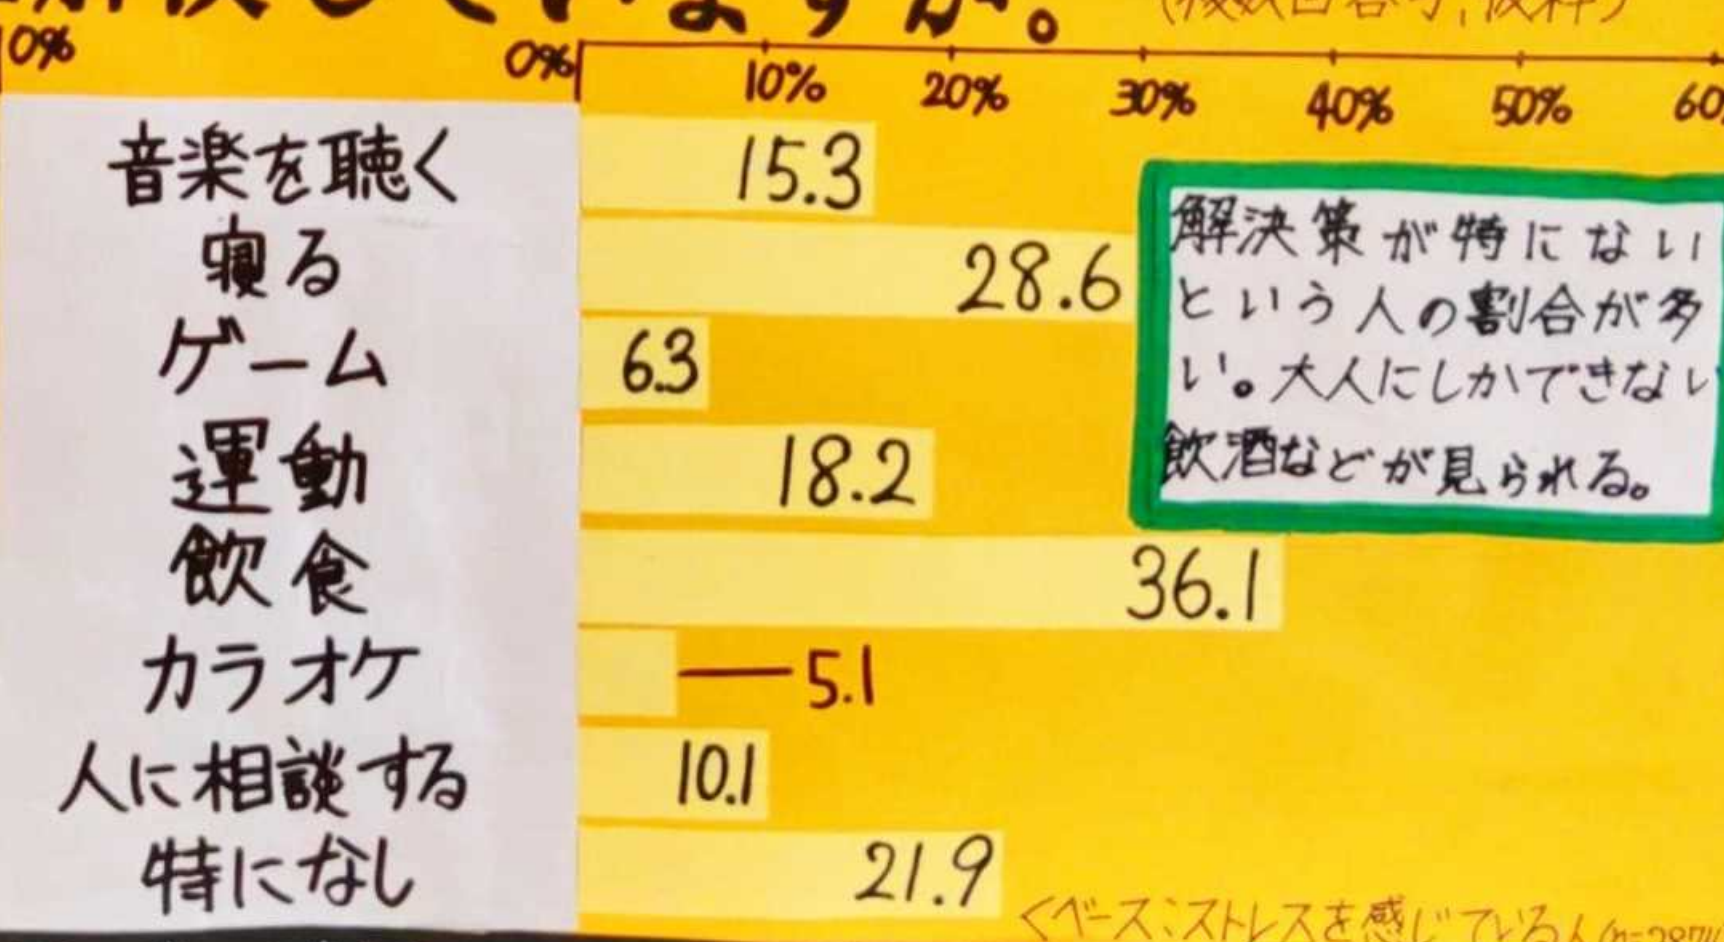 していますか。
0%
0% 10% 20% 30% 40% 50% 60
音楽を聴く 15.3
寝る 28.6
ゲーム 6.3
運動 18.2
飲食 36.1
カラオケ 5.1
人に相談する 10.1
特になし 21.9
解決策が特にない
という人の割合が多
い。大人にしかできない
飲酒などが見られる。
<ベース:ストレスを感じている人